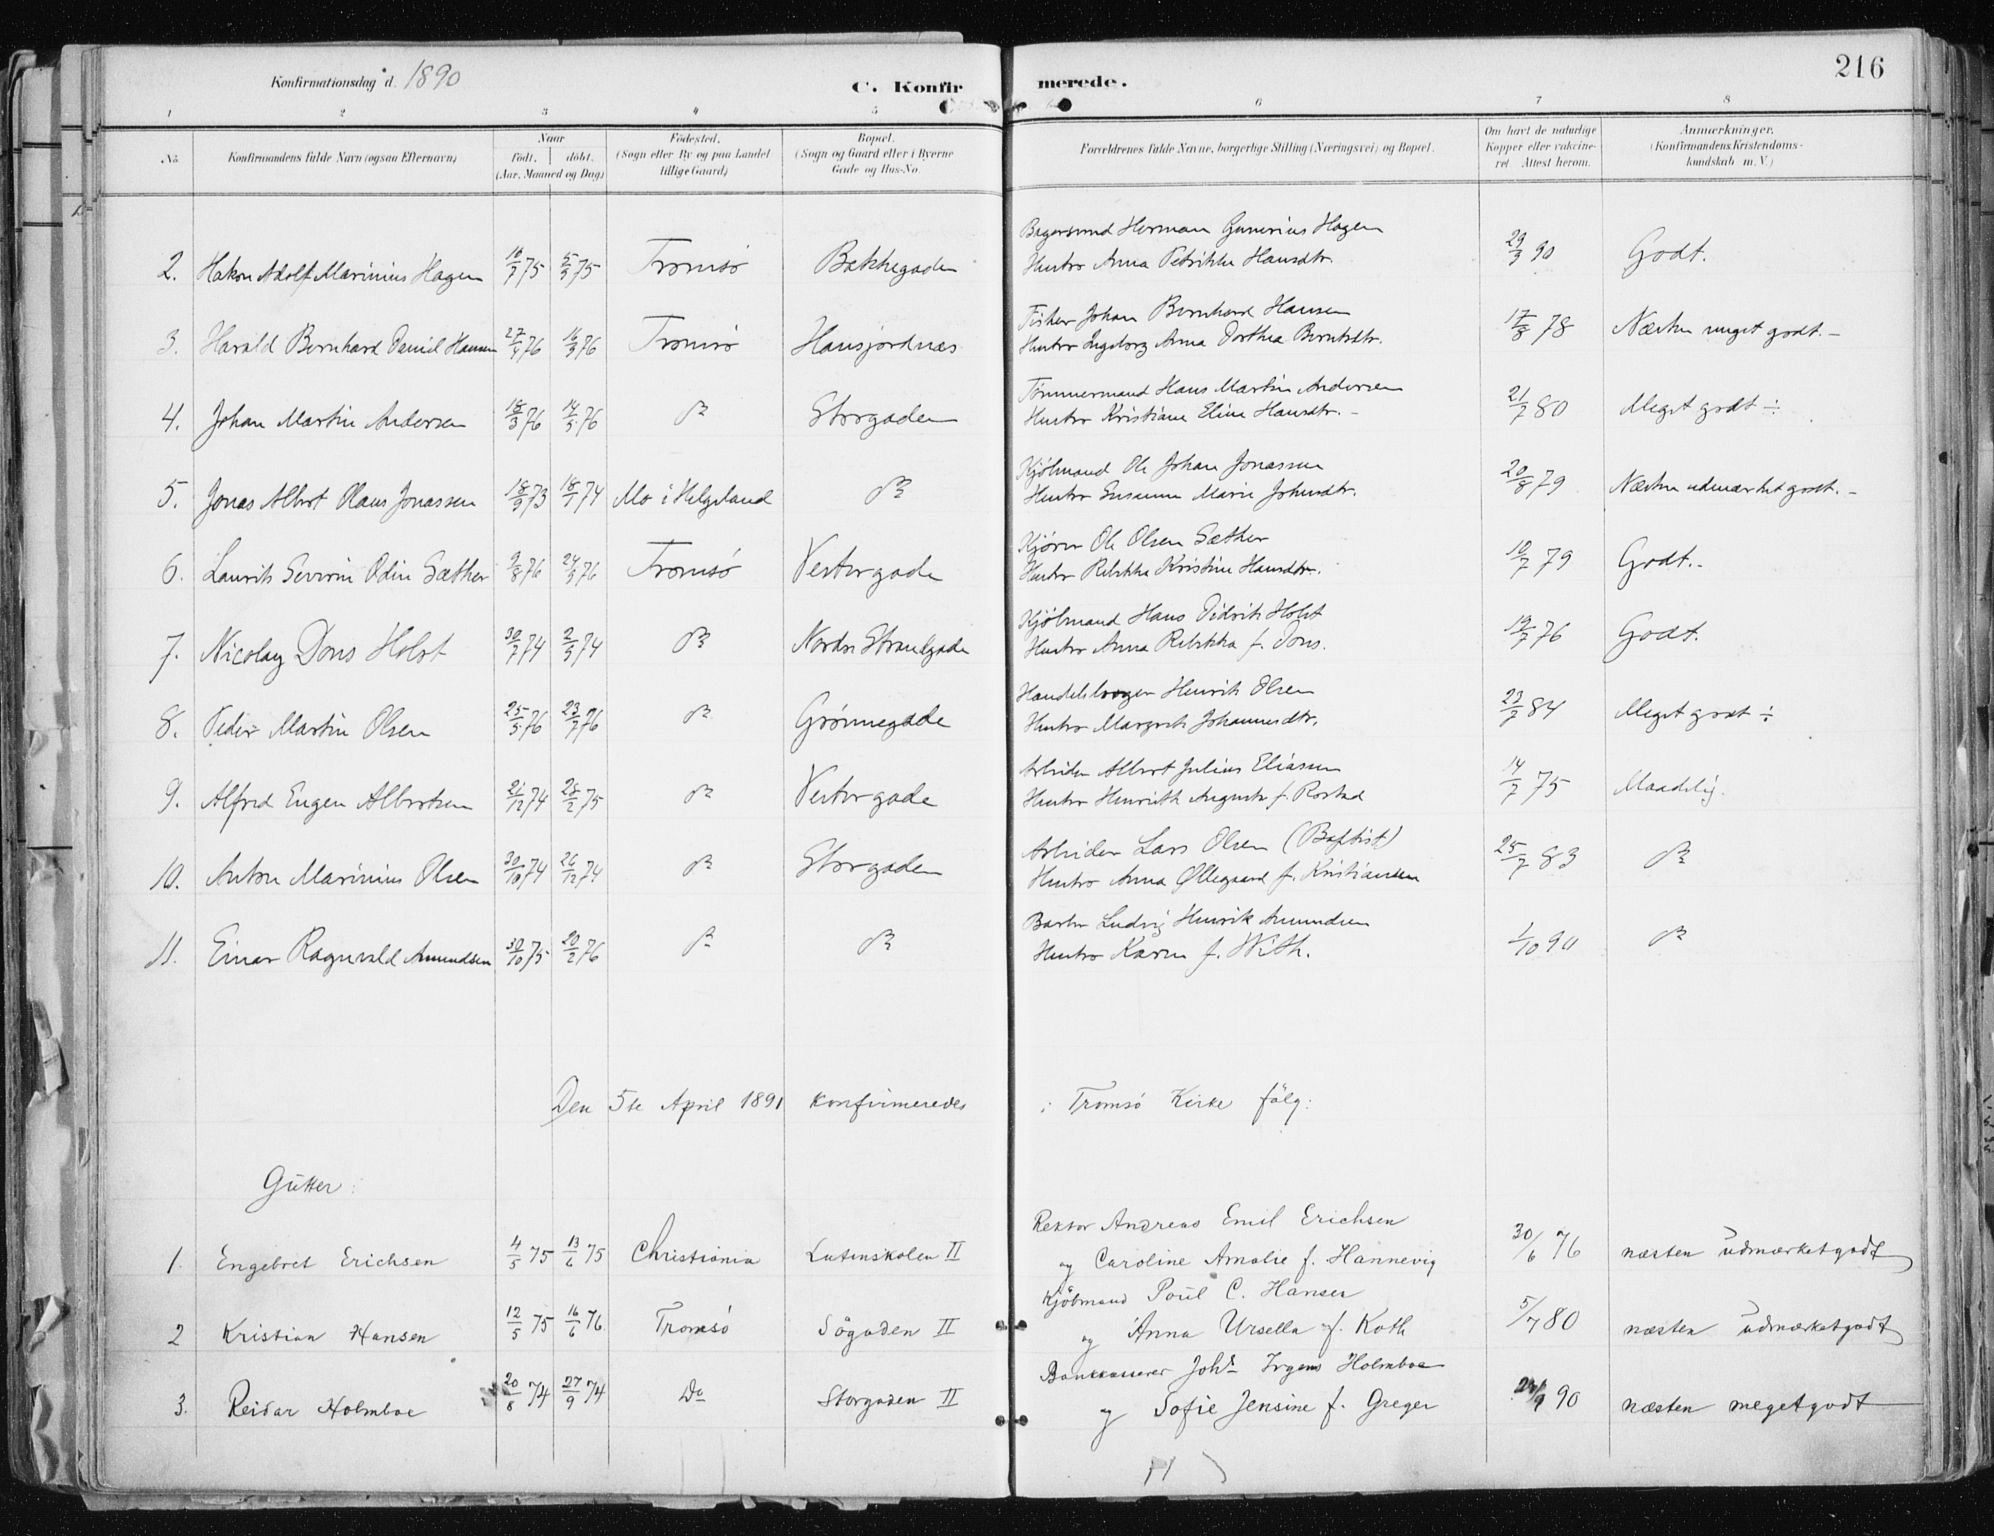 216
Konfirmationsdag d. 1890
C. Konfirmerede.
1 2 3 4 5 6 7 8
No. Konfirmandens fulde Navn (ogsaa Efternavn) Naar Födested. Bopæl. Forældrenes fulde Navne, borgerlige Stilling (Næringsvei) og Bopæl. Om havt de naturlige Anmærkninger.
födt. döbt. (Sogn eller By og paa Landet (Sogn og Gaard eller i Byerne Kopper eller vakcine- (Konfirmandens Kristendoms-
(Aar, Maaned og Dag) tillige Gaard) Gade og Hus-No. ret. Attest herom. kundskab m. V.)
Bagersvend Herman Gunerius Hagen
2. Hakon Adolf Marinius Hagen 75 5/3 75 Tromsö Bakkegaden Hustro Anna Petrikke Hansdtr. 29/3 90 Godt.
Fisker Johan Bernhard Hansen
3. Harald Bernhard Daniel Hansen 27/1 76 16/3 76 Tromsö Hansjordnæs Hustro Ingeborg Anna Dorthea Berntsdtr. 17/8 78 Næsten meget godt. -
Tømmermand Hans Martin Andersen
4. Johan Martin Andersen 18/3 76 14/5 76 do Storgaden Hustro Kristiane Eline Hansdtr. - 21/7 80 Meget godt ÷
Kjöbmand Ole Johan Jonassen
5. Jonas Albert Olaus Jonassen 18/9 73 18/1 74 Mo i Helgeland do Hustro Susanna Marie Johnsdtr. 20/8 79 Næsten udmærket godt. -
Kjører Ole Olsen Sæther
6. Laurits Severin Odin Sæther 76 24/9 76 Tromsö Vestergade Hustr Rebekka Kristine Hansdtr. 10/7 79 Godt. -
Kjöbmand Hans Didrik Holst
7. Nicolay Dons Holst 74 2/5 74 do Nordre Strandgade Hustro Anna Rebekka f. Dons. 19/7 76 Godt.
Handelsborger Henrik Olsen
8. Peder Martin Olsen 25/5 76 23/7 76 do Grønnegade Hustro Margrete Johannesdtr. 23/7 84 Meget godt ÷
Arbeider Albert Julius Eliassen
9. Alfred Eugen Albertsen 21/12 74 28/2 75 do Vestergade Hustro Henriette Augusta f. Rostad 14/7 75 Maadelig.
Arbeider Lars Olsen (Baptist)
10. Anton Marinius Olsen 30/10 74 26/12 74 do Storgaden Hustro Anna Øllegaard f. Kristiansen 25/7 83 do
Barber Ludvig Henrik Amundsen
11. Einar Ragnvald Amundsen 30/10 75 20/2 76 do do Hustro Karen f. With. 1/10 90 do
Den 5te April 1891 konfirmeredes i Tromsö Kirke fölg:
Gutter:
Rektor Andreas Emil Erichsen
1. Engebret Erichsen 4/5 75 13/6 75 Christiania Latinskolen II og Caroline Amalie f. Hannevig 30/6 76 næsten udmærket godt
Kjöbmand Poul C. Hansen
2 Kristian Hansen 12/5 75 16/6 76 Tromsö Sögaden II og Anna Ursella f. Koth 5/7 80 næsten udmærket godt
Bankkasserer Johs Irgens Holmboe
3. Reidar Holmboe 20/8 74 27/9 74 Do Storgaden II og Sofie Jensine f. Greger 90 næsten meget godt